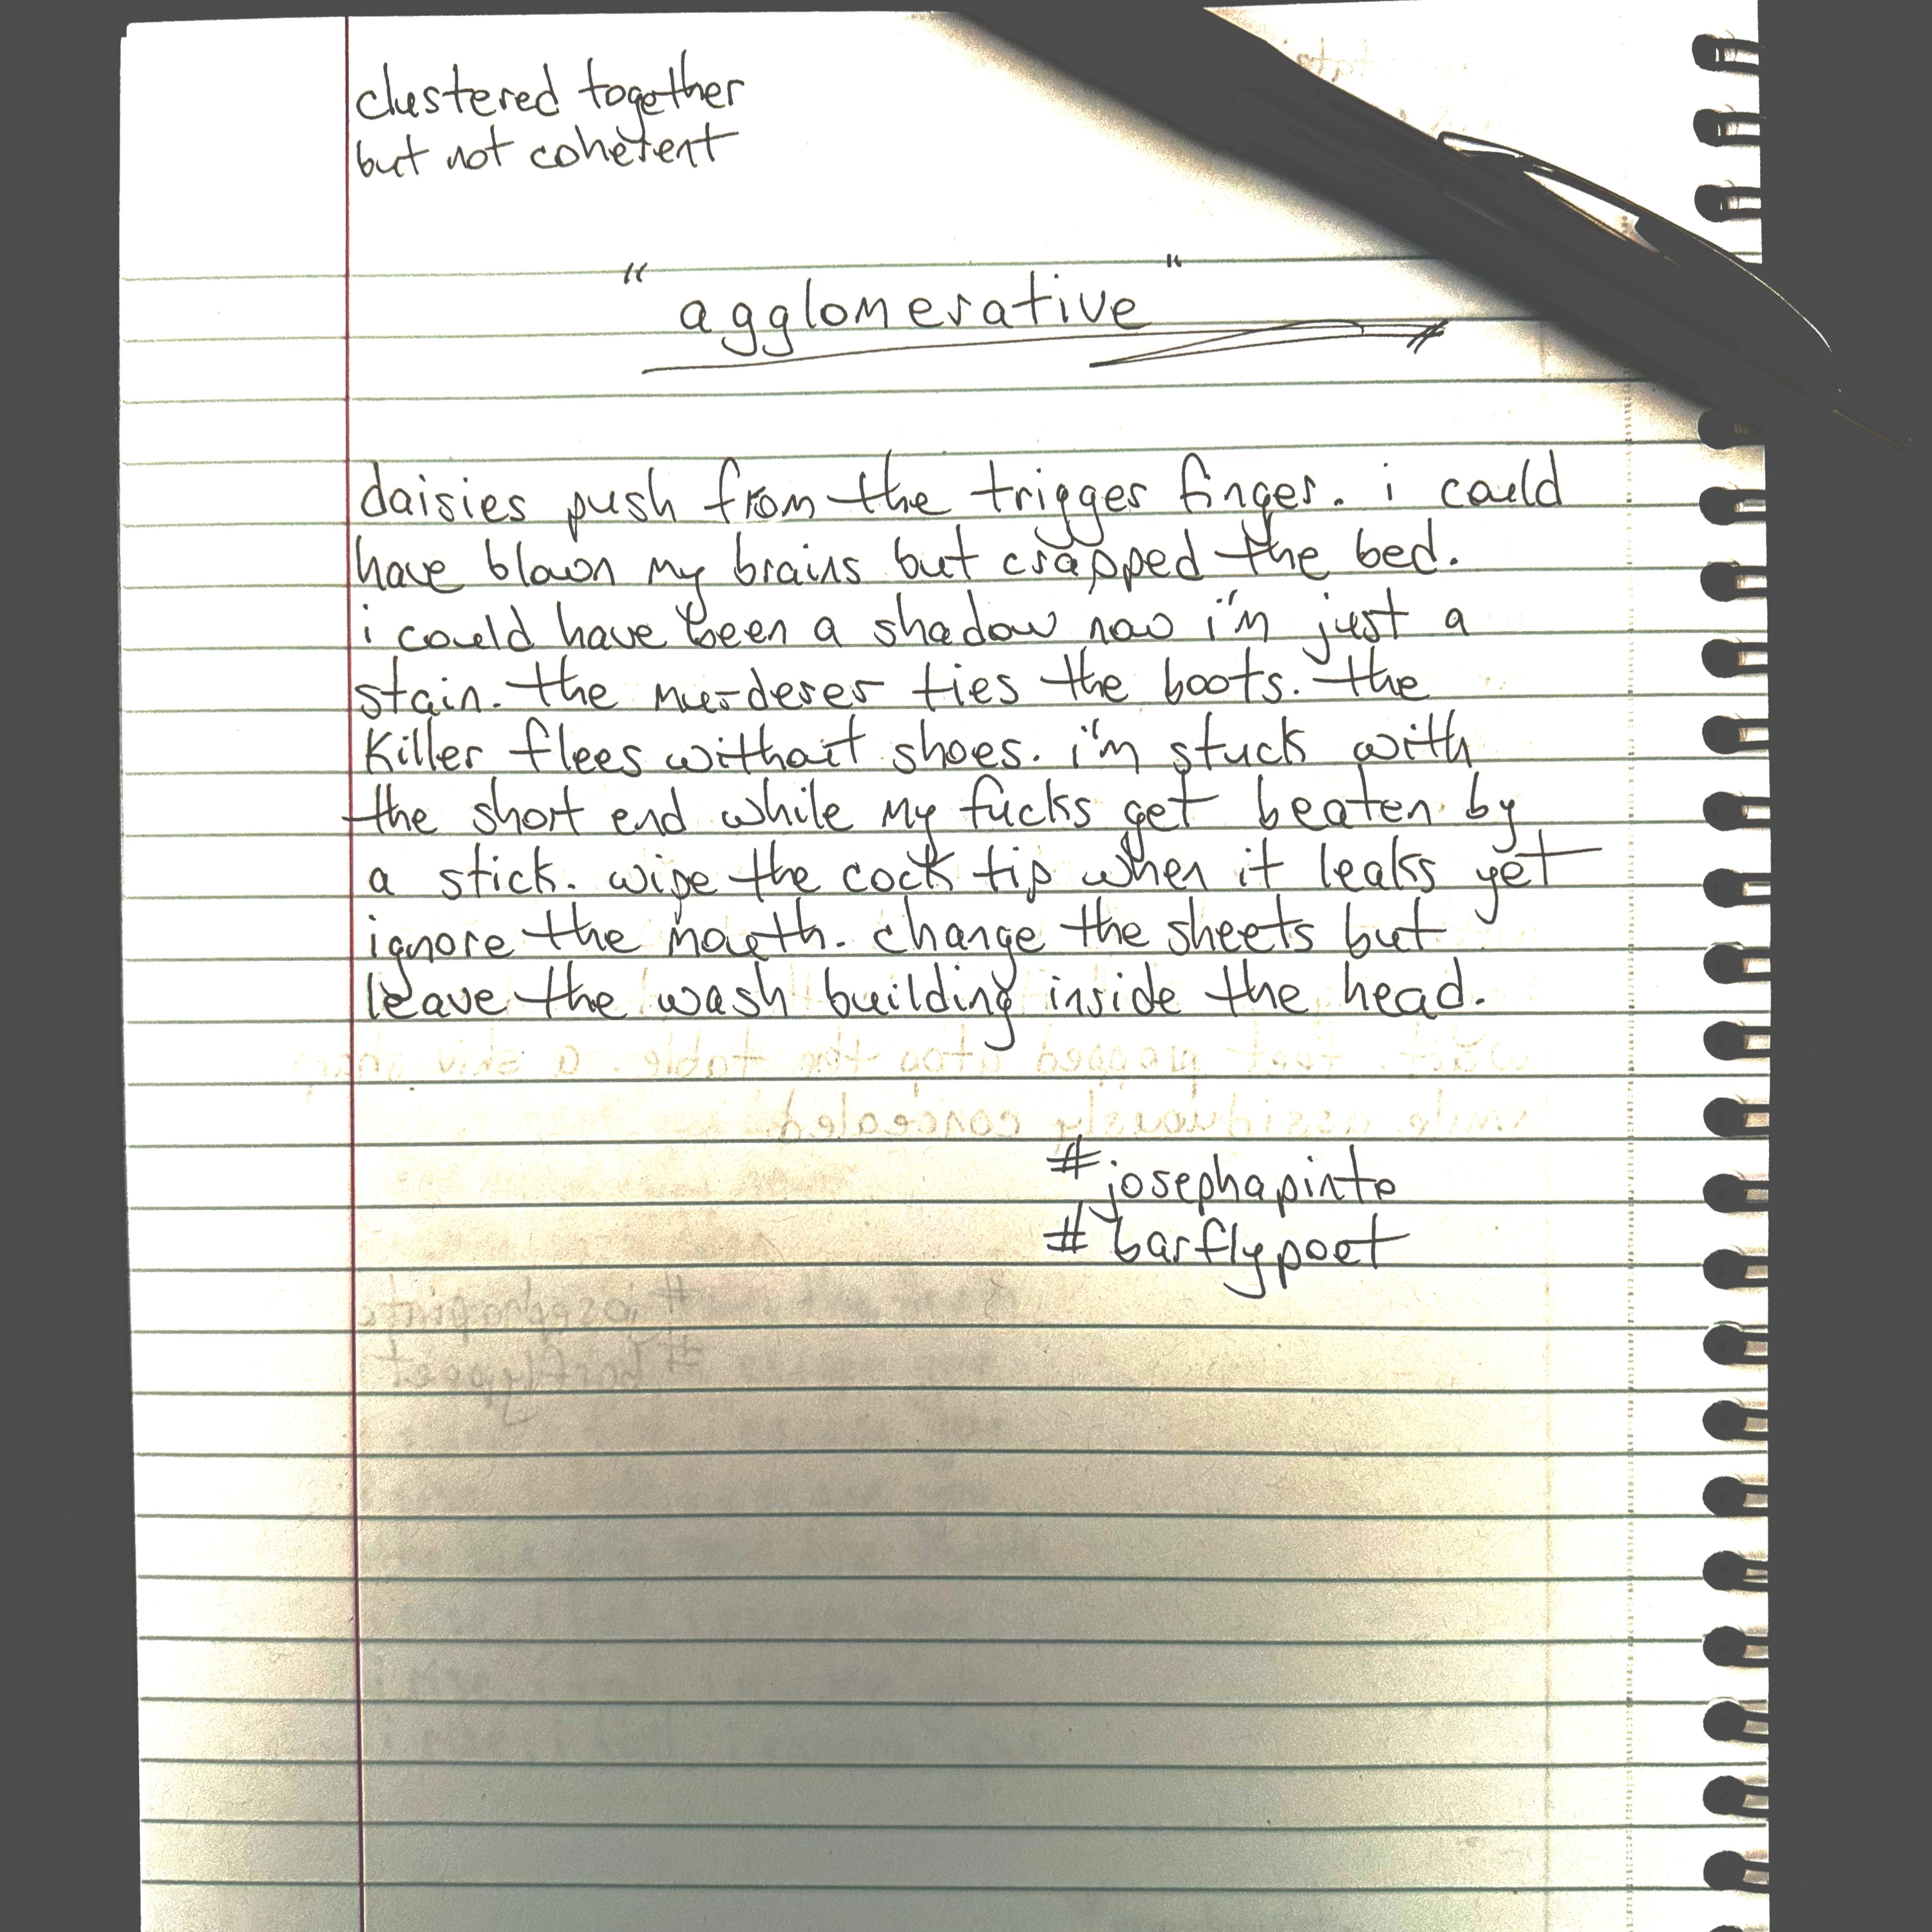 clustered together
but not coherent
"agglomerative"
daisies push from the trigger finger. i could
have blown my brains but crapped the bed.
i could have been a shadow now i'm just a
stain. the murderer ties the boots. the
killer flees without shoes. i'm stuck with
the short end while my fucks get beaten by
a stick. wipe the cock tip when it leaks yet
ignore the mouth. change the sheets but
leave the wash building inside the head.
atop the table. a shiv
smile assiduously concealed
#josephapinto
#barflypoet
#josephapinto
#barflypoet